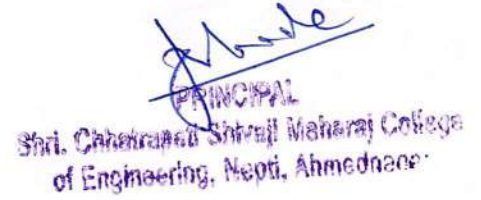 PRINCIPAL
Shri. Chhatrapati Shivaji Maharaj College
of Engineering, Nepti, Ahmednagar.